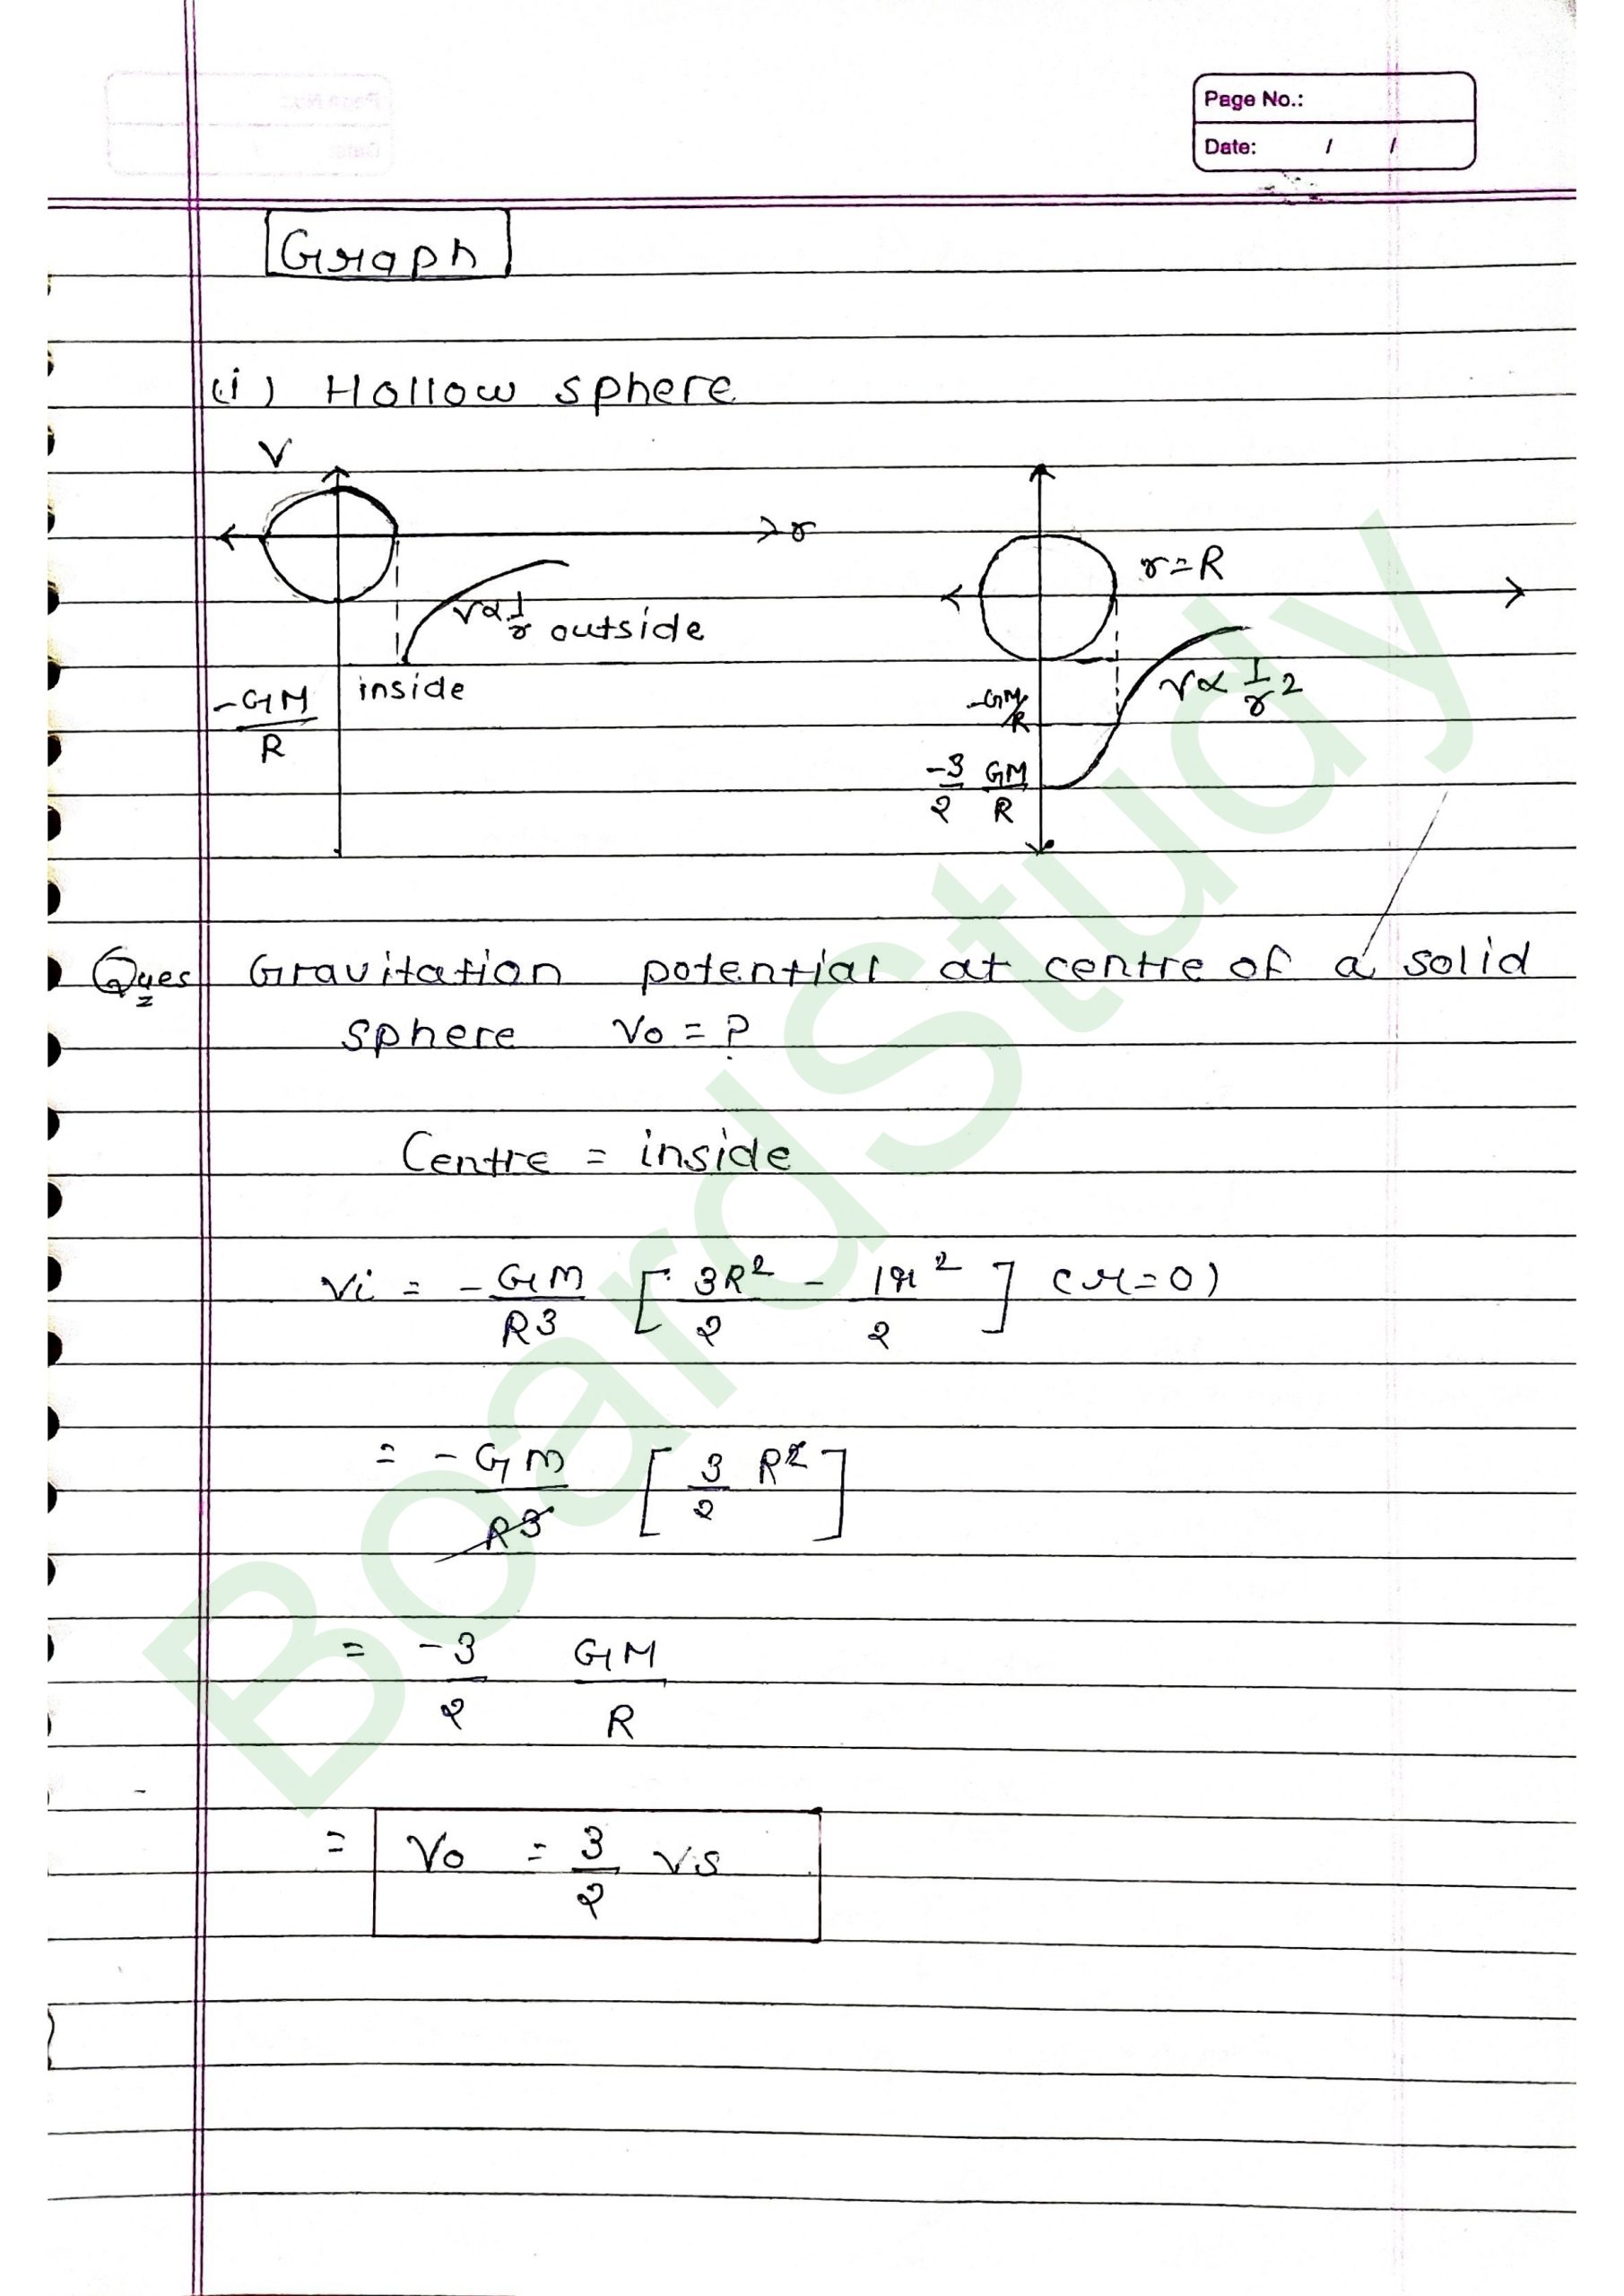 Page No.:
Date: / /
Graph
(i) Hollow sphere
V
r
r=R
V∝1/r outside
inside
-GM/R
-GM/R
V∝1/r2
-3/2 GM/R
Ques Gravitation potential at centre of a solid
sphere Vo = ?
Centre = inside
Vi = -GM/R3 [3R²/2 - 1r²/2] (r=0)
= -GM/R3 [3/2 R²]
= -3/2 GM/R
= Vo = 3/2 Vs
BoardStudy